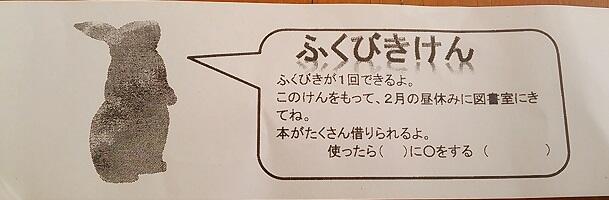 ふくびきけん
ふくびきが１回できるよ。
このけんをもって、２月の昼休みに図書室にき
てね。
本がたくさん借りられるよ。
使ったら(　)に〇をする（　　　　）